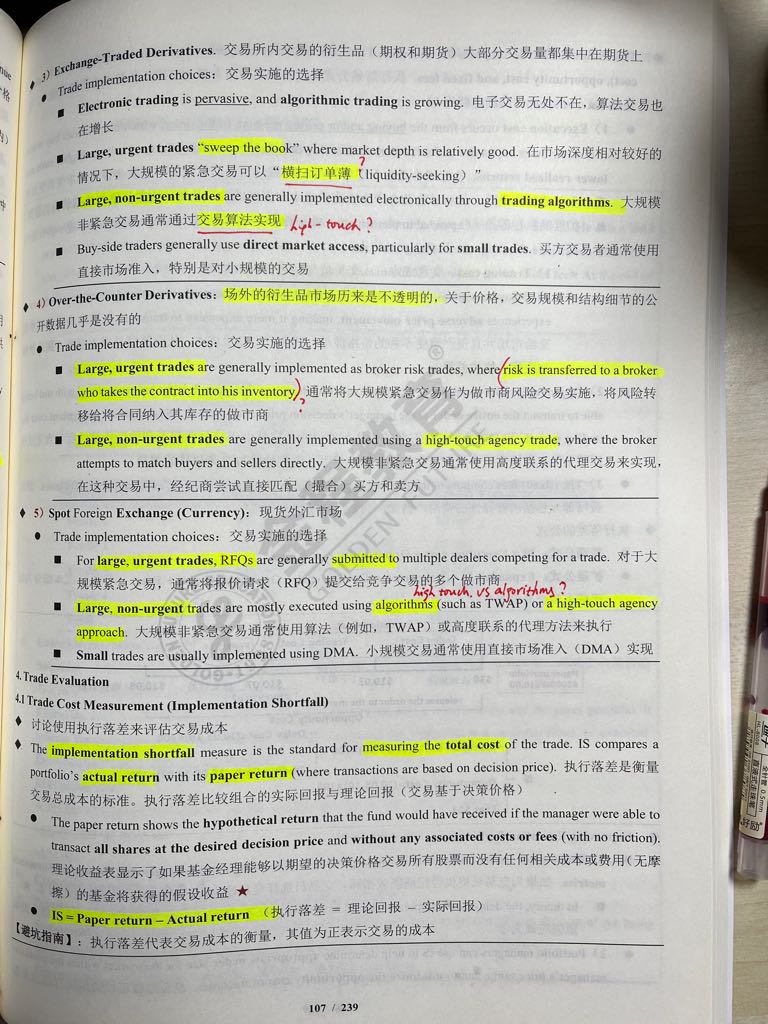 3) Exchange-Traded Derivatives. 交易所内交易的衍生品（期权和期货）大部分交易量都集中在期货上
Trade implementation choices：交易实施的选择
Electronic trading is pervasive, and algorithmic trading is growing. 电子交易无处不在，算法交易也
在增长
Large, urgent trades “sweep the book” where market depth is relatively good. 在市场深度相对较好的
?
情况下，大规模的紧急交易可以“横扫订单薄（liquidity-seeking）”
Large, non-urgent trades are generally implemented electronically through trading algorithms. 大规模
非紧急交易通常通过交易算法实现 high-touch?
Buy-side traders generally use direct market access, particularly for small trades. 买方交易者通常使用
直接市场准入，特别是对小规模的交易
4) Over-the-Counter Derivatives：场外的衍生品市场历来是不透明的，关于价格，交易规模和结构细节的公
开数据几乎是没有的
Trade implementation choices：交易实施的选择
Large, urgent trades are generally implemented as broker risk trades, where risk is transferred to a broker
who takes the contract into his inventory. 通常将大规模紧急交易作为做市商风险交易实施，将风险转
?
移给将合同纳入其库存的做市商
Large, non-urgent trades are generally implemented using a high-touch agency trade, where the broker
attempts to match buyers and sellers directly. 大规模非紧急交易通常使用高度联系的代理交易来实现，
在这种交易中，经纪商尝试直接匹配（撮合）买方和卖方
5) Spot Foreign Exchange (Currency)：现货外汇市场
Trade implementation choices：交易实施的选择
For large, urgent trades, RFQs are generally submitted to multiple dealers competing for a trade. 对于大
规模紧急交易，通常将报价请求（RFQ）提交给竞争交易的多个做市商
high touch vs algorithms?
Large, non-urgent trades are mostly executed using algorithms (such as TWAP) or a high-touch agency
approach. 大规模非紧急交易通常使用算法（例如，TWAP）或高度联系的代理方法来执行
Small trades are usually implemented using DMA. 小规模交易通常使用直接市场准入（DMA）实现
4. Trade Evaluation
4.1 Trade Cost Measurement (Implementation Shortfall)
讨论使用执行落差来评估交易成本
The implementation shortfall measure is the standard for measuring the total cost of the trade. IS compares a
portfolio’s actual return with its paper return (where transactions are based on decision price). 执行落差是衡量
交易总成本的标准。执行落差比较组合的实际回报与理论回报（交易基于决策价格）
The paper return shows the hypothetical return that the fund would have received if the manager were able to
transact all shares at the desired decision price and without any associated costs or fees (with no friction).
理论收益表显示了如果基金经理能够以期望的决策价格交易所有股票而没有任何相关成本或费用（无摩
擦）的基金将获得的假设收益 ★
IS = Paper return – Actual return （执行落差 = 理论回报 – 实际回报）
【避坑指南】：执行落差代表交易成本的衡量，其值为正表示交易的成本
107 / 239
金程教育
GOLDEN FUTURE
®
0.5mm